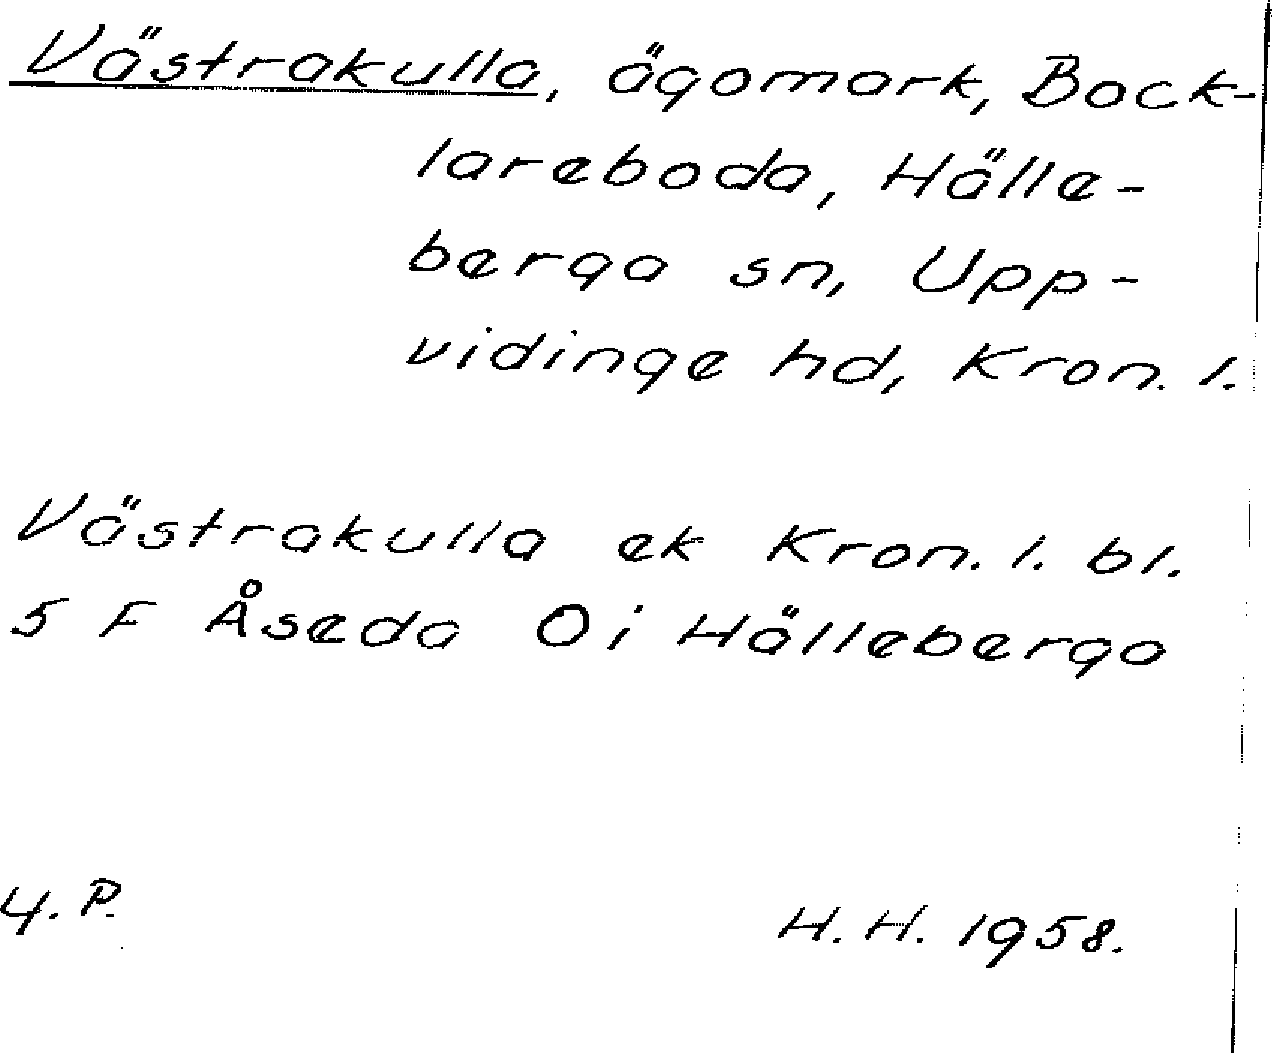 Västrakulla, ägomark, Bock-
lareboda, Hälle-
berga sn, Upp-
vidinge hd, Kron. l.
Västrakulla ek Kron. l. bl.
5 F Åseda 0 i Hälleberga
4. P.
H. H. 1958.